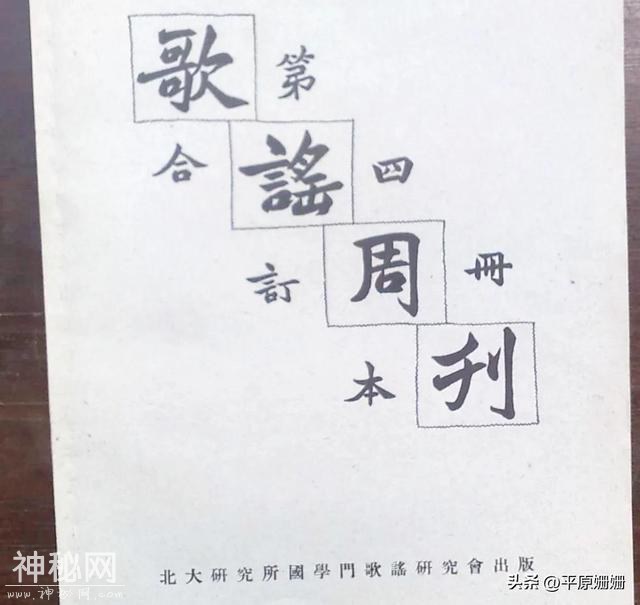 歌謠周刊
第四冊
合訂本
北大研究所國學門歌謠研究會出版
神秘网
www.神秘网.com
头条 @平原姗姗